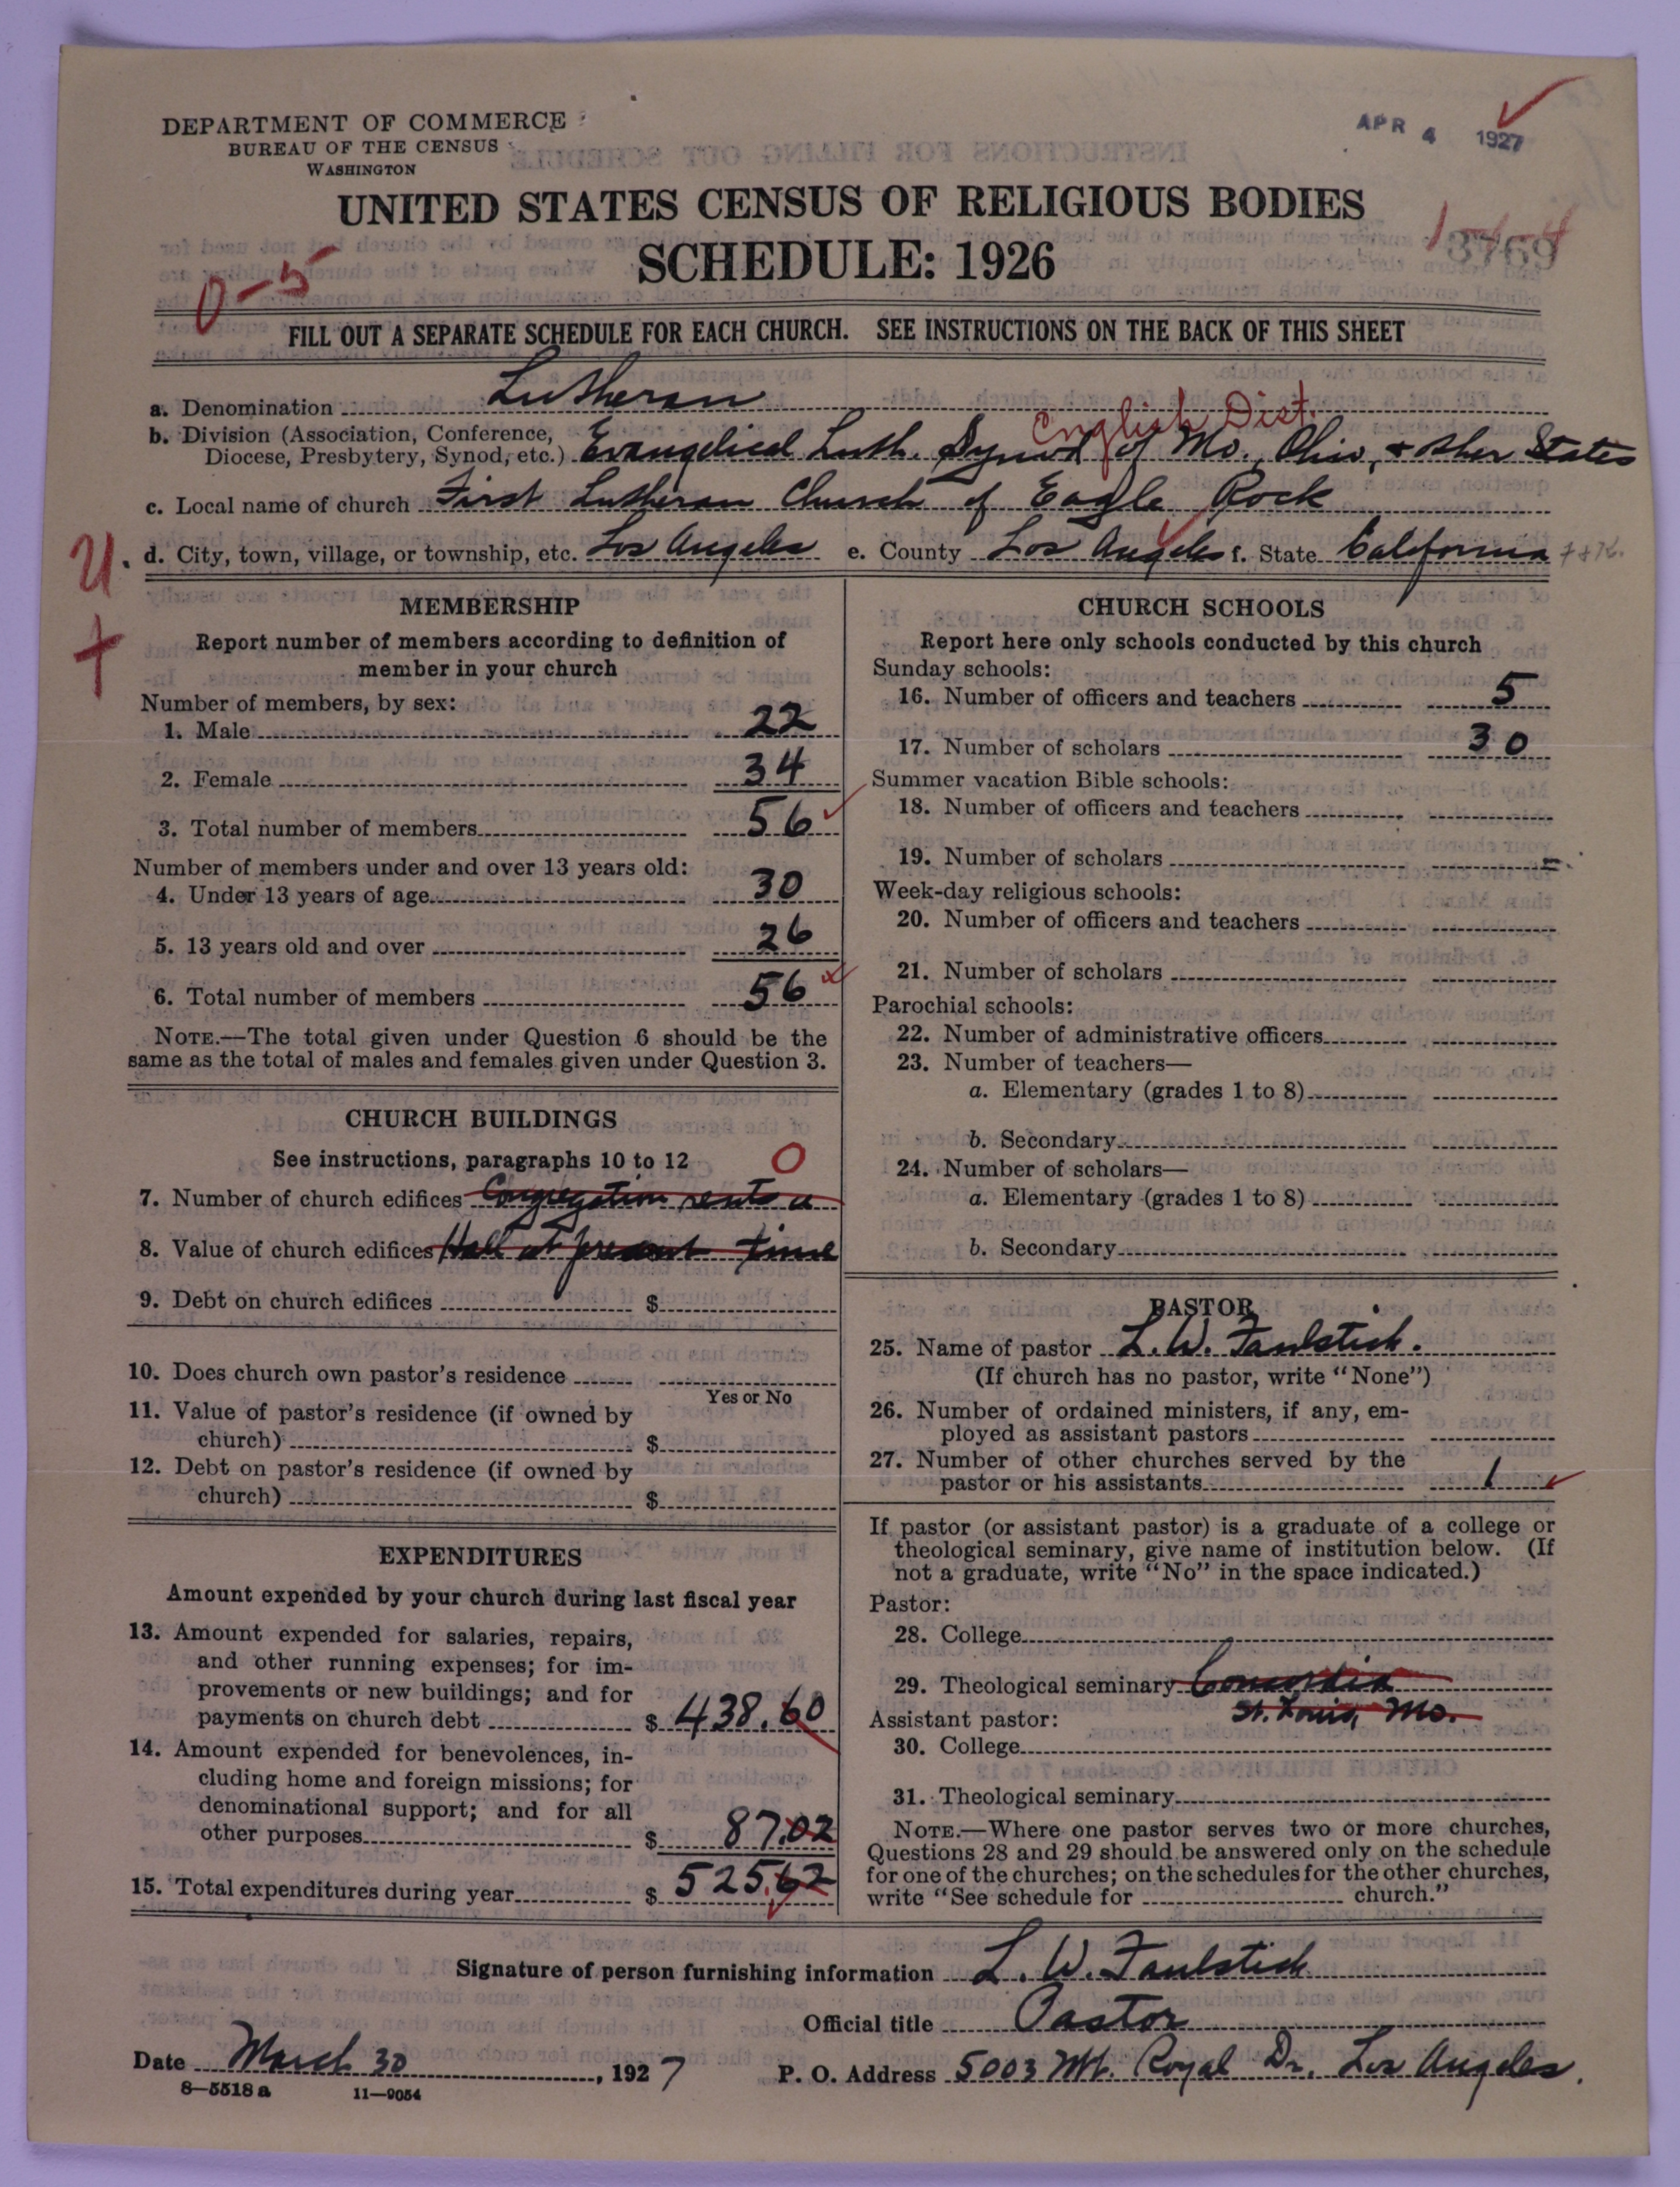 DEPARTMENT OF COMMERCE
BUREAU OF THE CENSUS
WASHINGTON
APR 4 1927
UNITED STATES CENSUS OF RELIGIOUS BODIES
SCHEDULE: 1926
3769
0-5
FILL OUT A SEPARATE SCHEDULE FOR EACH CHURCH. SEE INSTRUCTIONS ON THE BACK OF THIS SHEET
a. Denomination Lutheran
English Dist.
b. Division (Association, Conference,
Diocese, Presbytery, Synod, etc.) Evangelical Luth. Synod of Mo., Ohio, + other States
c. Local name of church First Lutheran Church of Eagle Rock
U.
d. City, town, village, or township, etc. Los Angeles e. County Los Angeles f. State California
MEMBERSHIP
Report number of members according to definition of
member in your church
Number of members, by sex:
1. Male 22
2. Female 34
3. Total number of members 56
Number of members under and over 13 years old:
4. Under 13 years of age 30
5. 13 years old and over 26
6. Total number of members 56
NOTE.—The total given under Question 6 should be the
same as the total of males and females given under Question 3.
CHURCH BUILDINGS
See instructions, paragraphs 10 to 12 0
7. Number of church edifices Congregation rents a
8. Value of church edifices Hall at present time
9. Debt on church edifices $
10. Does church own pastor's residence
Yes or No
11. Value of pastor's residence (if owned by
church) $
12. Debt on pastor's residence (if owned by
church) $
EXPENDITURES
Amount expended by your church during last fiscal year
13. Amount expended for salaries, repairs,
and other running expenses; for im-
provements or new buildings; and for
payments on church debt $ 438.60
14. Amount expended for benevolences, in-
cluding home and foreign missions; for
denominational support; and for all
other purposes $ 87.02
15. Total expenditures during year $ 525.62
CHURCH SCHOOLS
Report here only schools conducted by this church
Sunday schools:
16. Number of officers and teachers 5
17. Number of scholars 30
Summer vacation Bible schools:
18. Number of officers and teachers
19. Number of scholars
Week-day religious schools:
20. Number of officers and teachers
21. Number of scholars
Parochial schools:
22. Number of administrative officers
23. Number of teachers—
a. Elementary (grades 1 to 8)
b. Secondary
24. Number of scholars—
a. Elementary (grades 1 to 8)
b. Secondary
PASTOR
25. Name of pastor L. W. Faulstich.
(If church has no pastor, write "None")
26. Number of ordained ministers, if any, em-
ployed as assistant pastors
27. Number of other churches served by the
pastor or his assistants 1
If pastor (or assistant pastor) is a graduate of a college or
theological seminary, give name of institution below. (If
not a graduate, write "No" in the space indicated.)
Pastor:
28. College
29. Theological seminary Concordia
St. Louis, Mo.
Assistant pastor:
30. College
31. Theological seminary
NOTE.—Where one pastor serves two or more churches,
Questions 28 and 29 should be answered only on the schedule
for one of the churches; on the schedules for the other churches,
write "See schedule for church."
Signature of person furnishing information L. W. Faulstich
Official title Pastor
Date March 30, 1927 P. O. Address 5003 Mt. Royal Dr. Los Angeles.
8-5518 a 11-9054